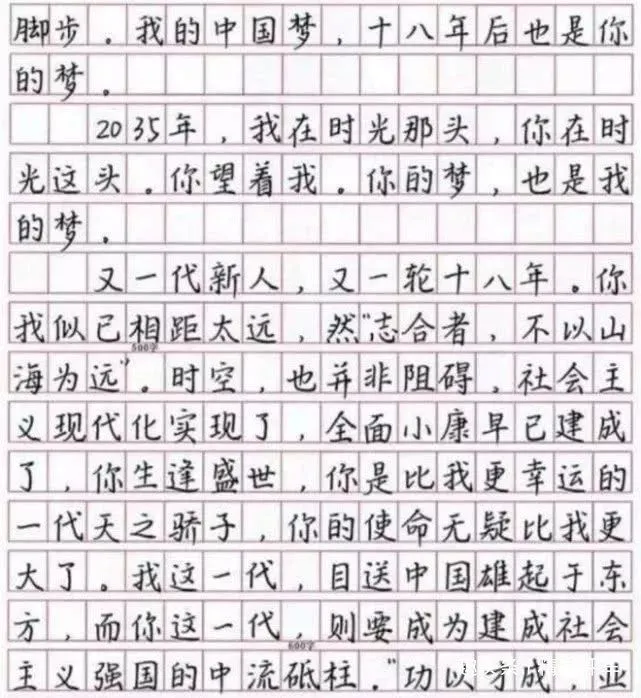 脚步。我的中国梦，十八年后也是你
的梦。
2035年，我在时光那头，你在时
光这头。你望着我。你的梦，也是我
的梦。
又一代新人，又一轮十八年。你
我似已相距太远，然“志合者，不以山
500字
海为远”。时空，也并非阻碍，社会主
义现代化实现了，全面小康早已建成
了，你生逢盛世，你是比我更幸运的
一代天之骄子，你的使命无疑比我更
大了。我这一代，目送中国雄起于东
方，而你这一代，则要成为建成社会
600字
主义强国的中流砥柱。“功以才成，业